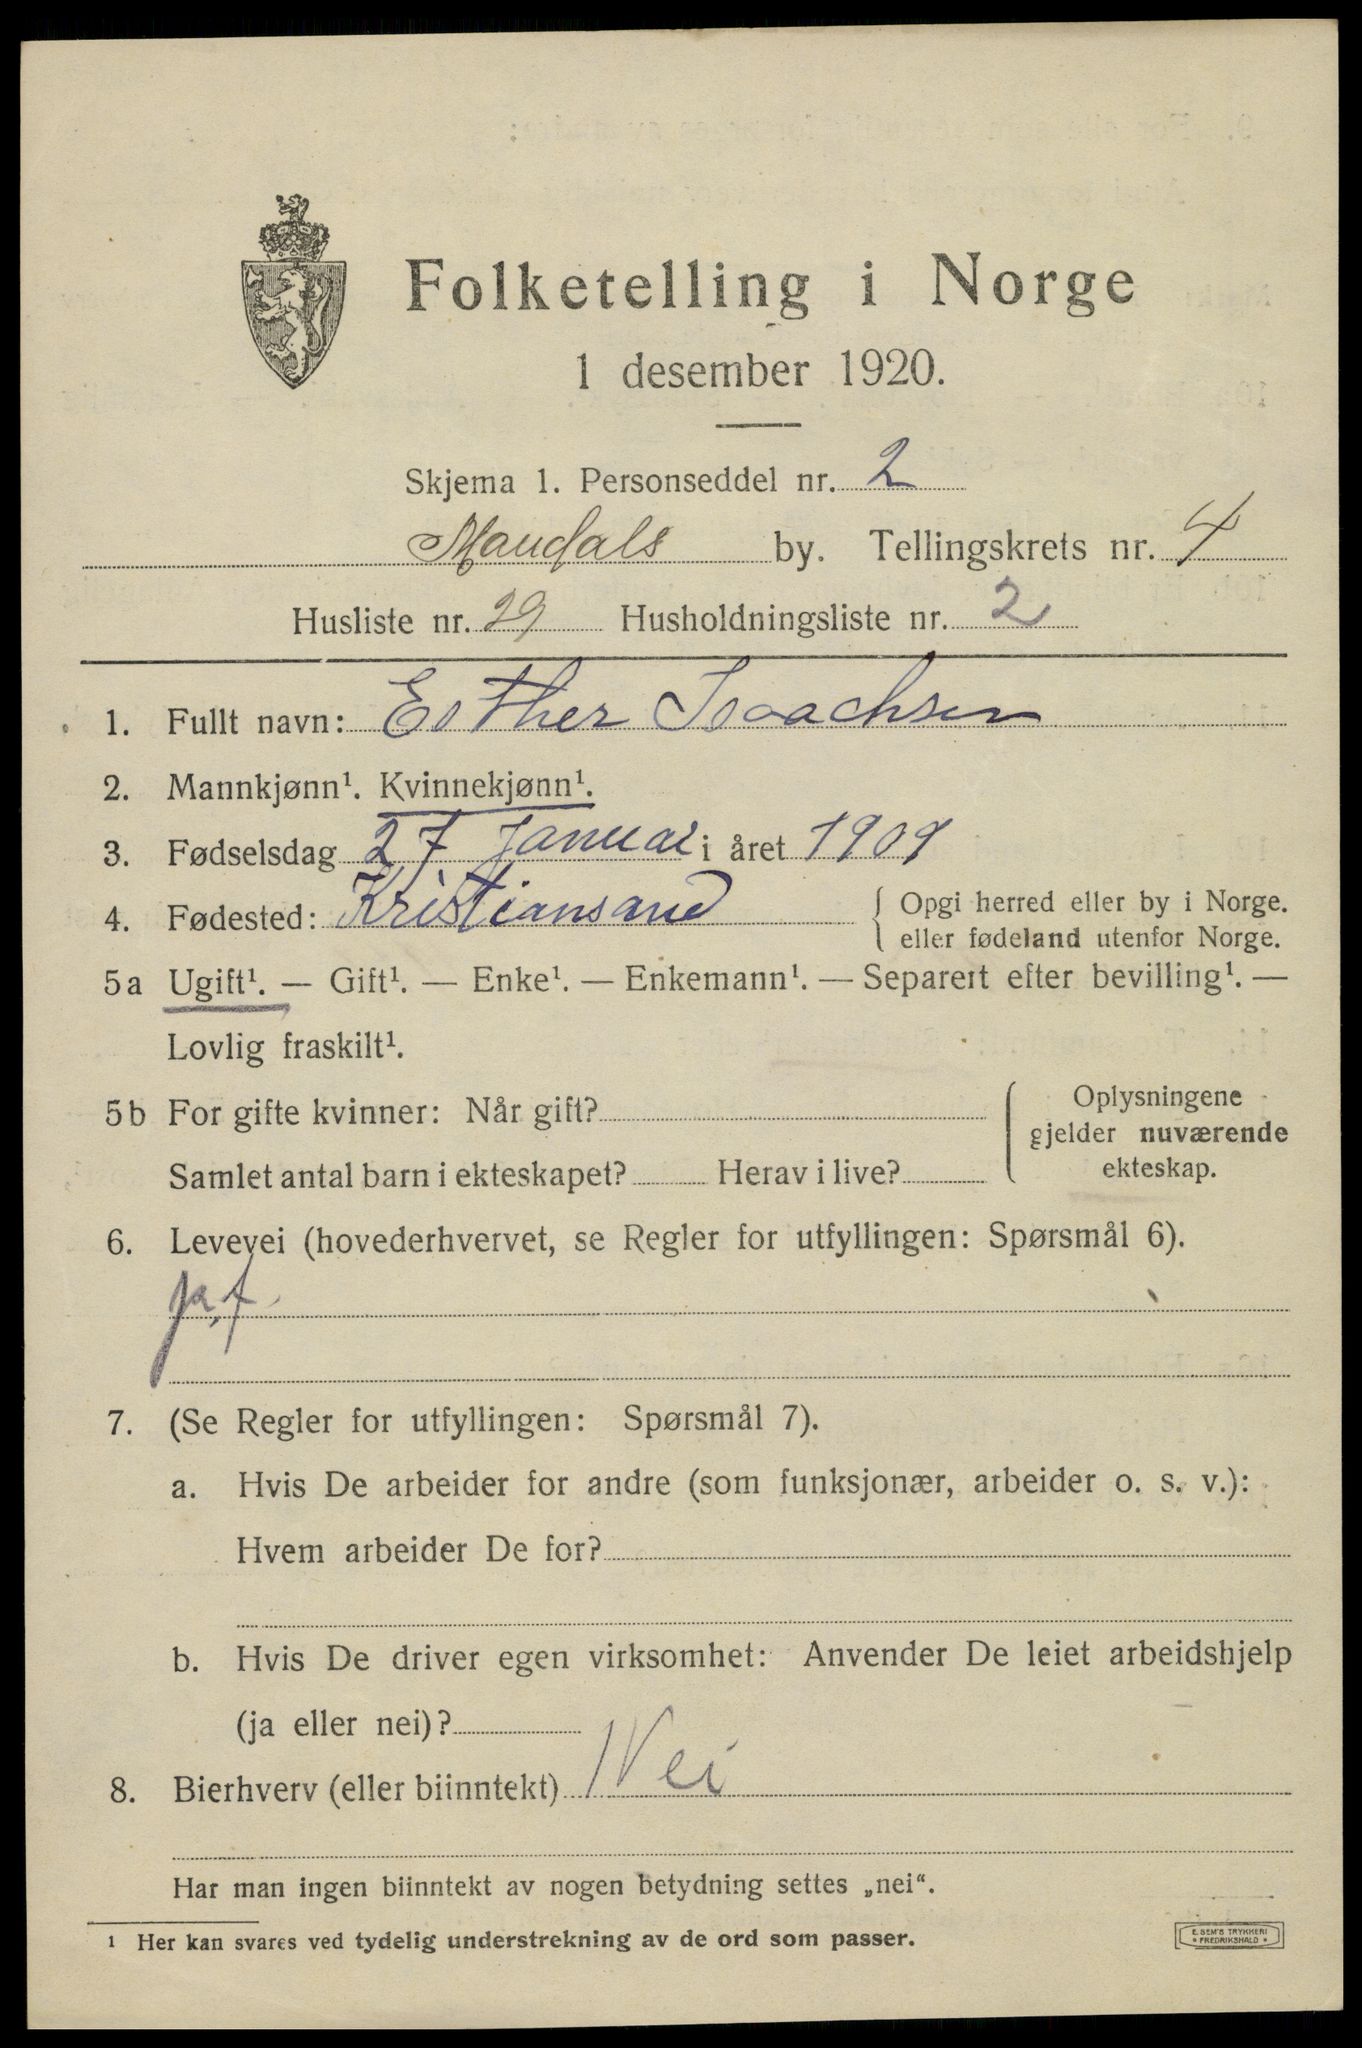 Folketelling i Norge
1 desember 1920.
Skjema 1. Personseddel nr. 2
Mandals by. Tellingskrets nr. 4
Husliste nr. 29 Husholdningsliste nr. 2
1. Fullt navn: Esther Isaachsen
2. Mannkjønn¹. Kvinnekjønn¹.
3. Fødselsdag 27 Januar i året 1909
4. Fødested: Kristiansand { Opgi herred eller by i Norge.
eller fødeland utenfor Norge.
5a Ugift¹. — Gift¹. — Enke¹. — Enkemann¹. — Separert efter bevilling¹. —
Lovlig fraskilt¹.
5b For gifte kvinner: Når gift? ( Oplysningene
gjelder nuværende
Samlet antal barn i ekteskapet? Herav i live? ekteskap.
6. Levevei (hovederhvervet, se Regler for utfyllingen: Spørsmål 6).
7. (Se Regler for utfyllingen: Spørsmål 7).
a. Hvis De arbeider for andre (som funksjonær, arbeider o. s. v.):
Hvem arbeider De for?
b. Hvis De driver egen virksomhet: Anvender De leiet arbeidshjelp
(ja eller nei)?
8. Bierhverv (eller biinntekt) Nei
Har man ingen biinntekt av nogen betydning settes „nei“.
¹ Her kan svares ved tydelig understrekning av de ord som passer.
E. SEM'S TRYKKERI
* FREDRIKSHALD *